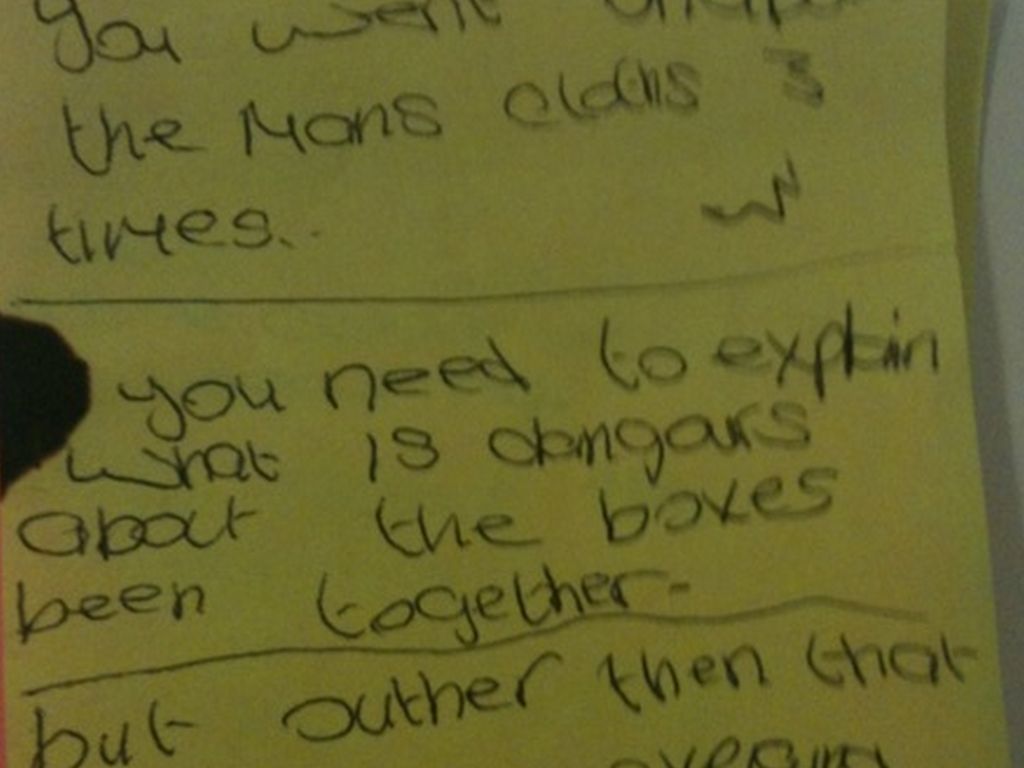 You went
the Mans cloths 3
times..
you need to explain
what is dangars
about the boxes
been together-
but outher then that